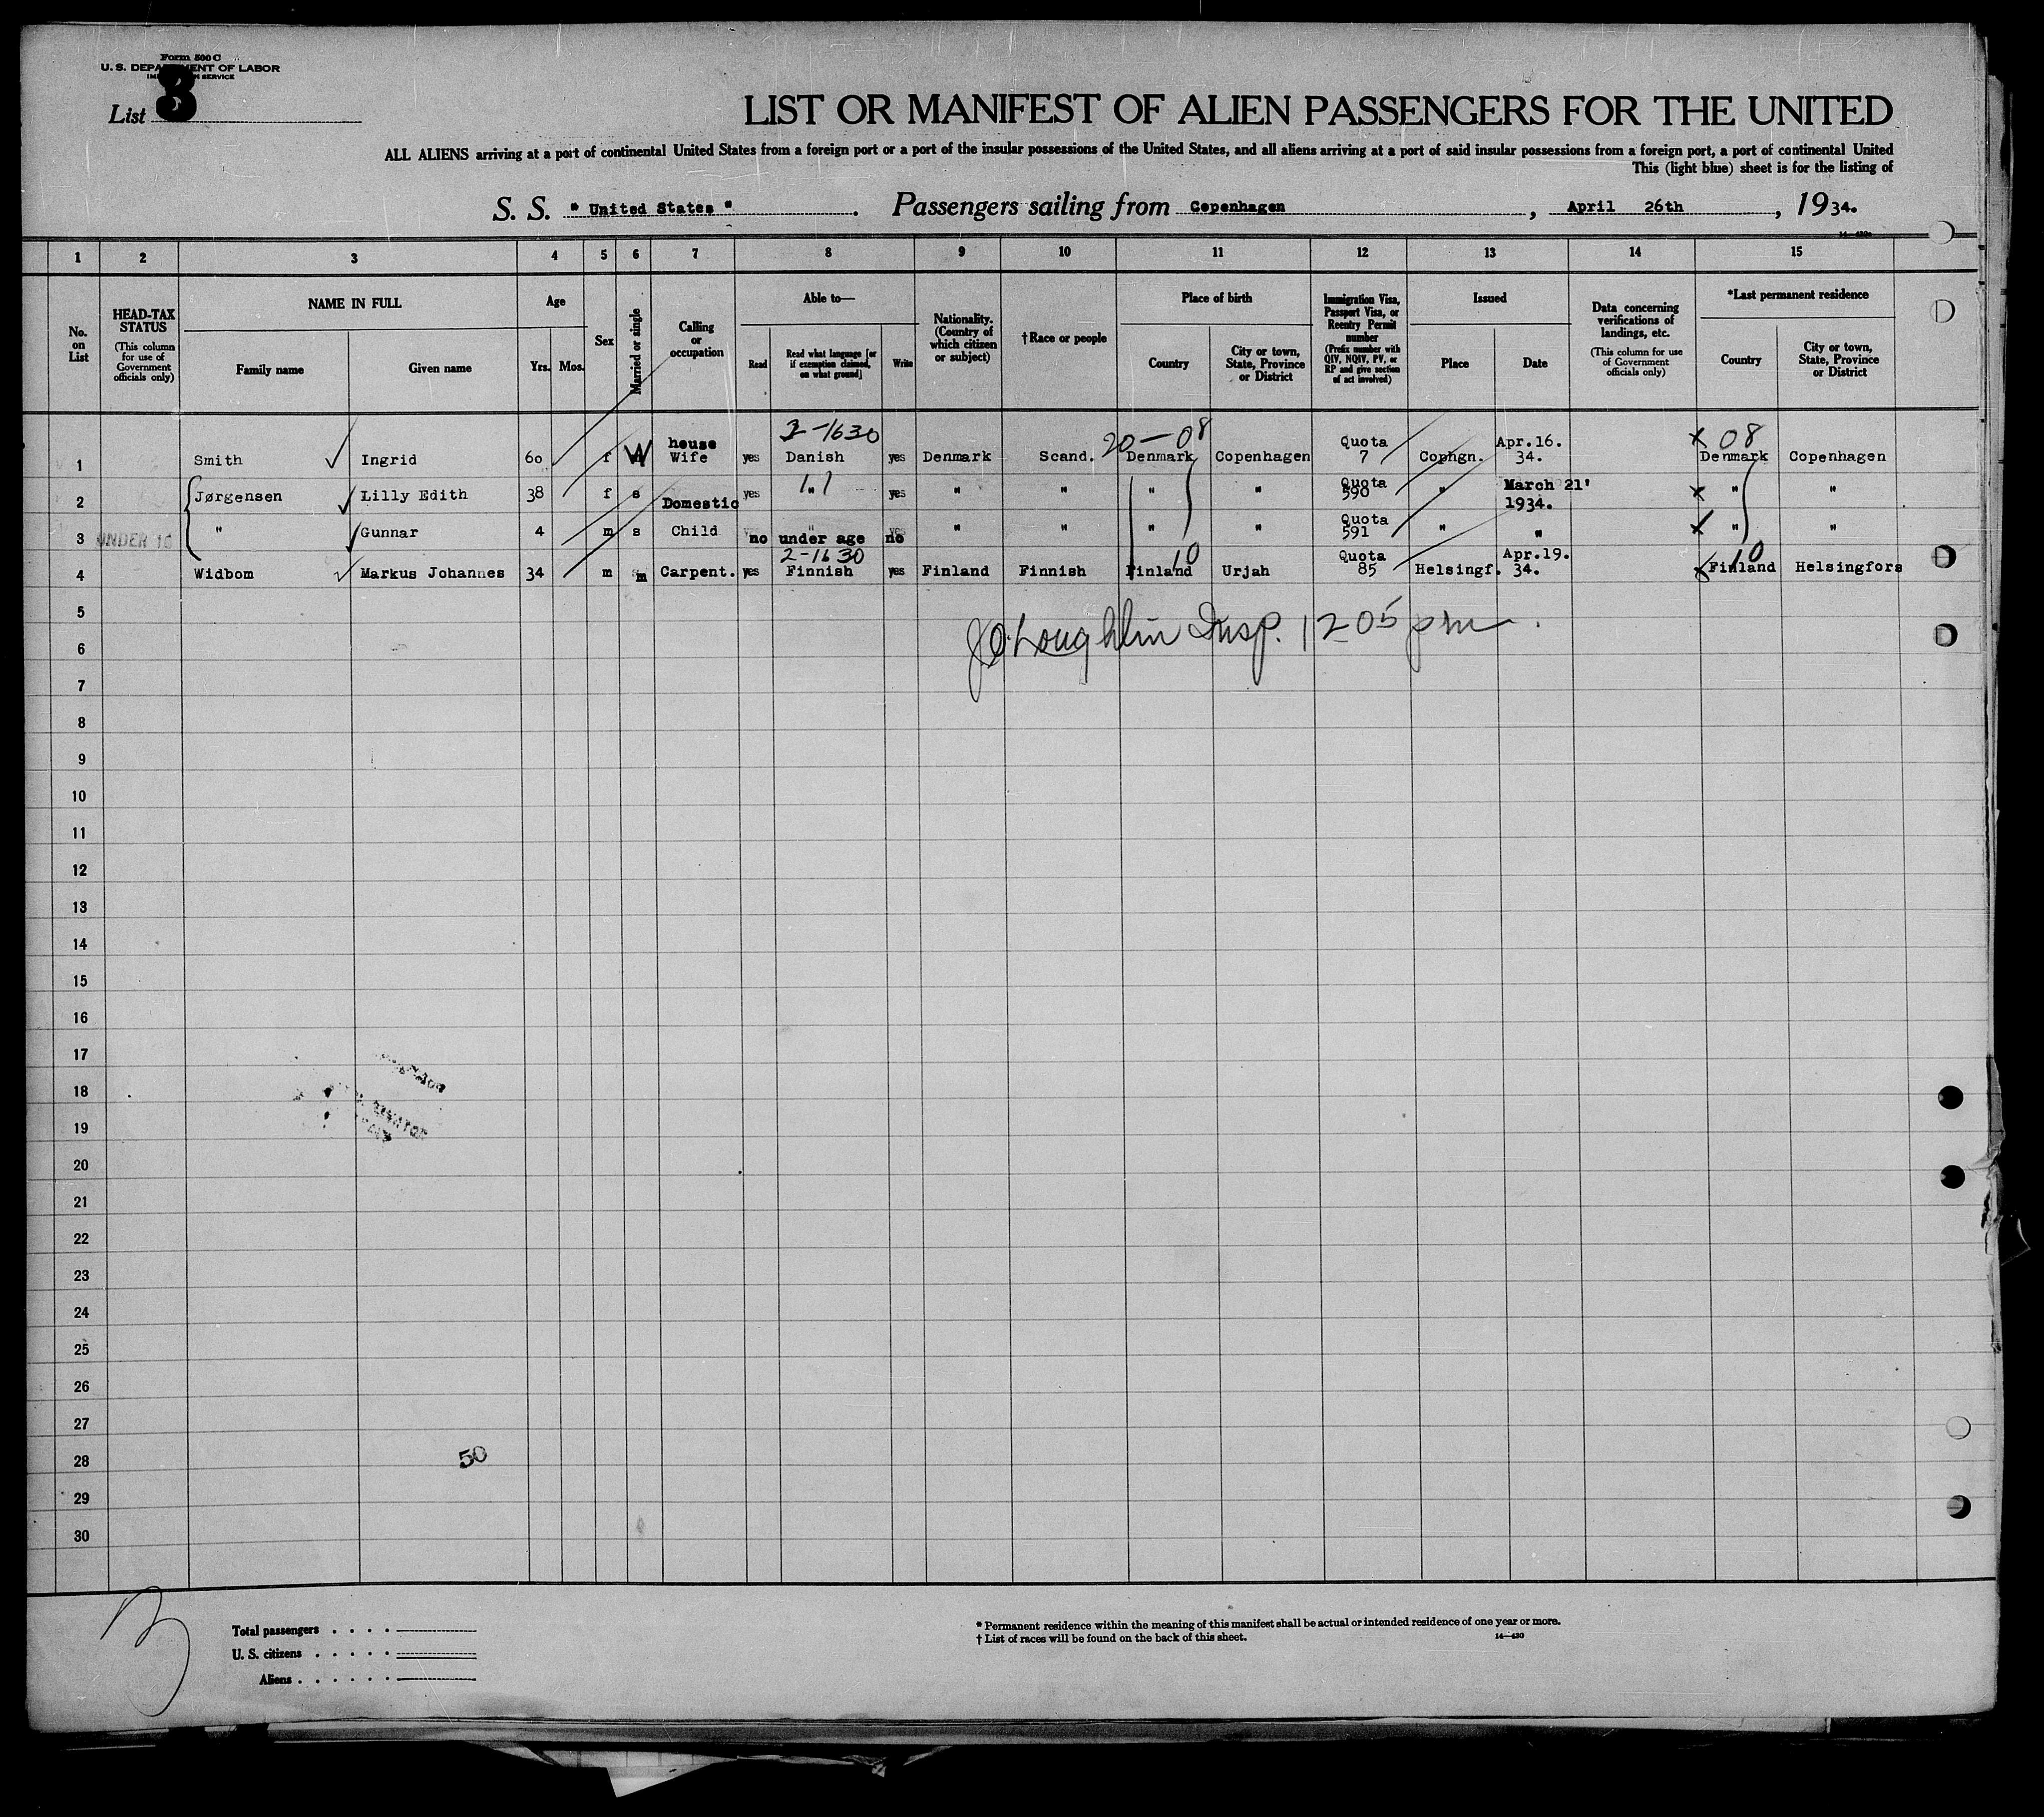 Form 500 C
U. S. DEPARTMENT OF LABOR
IMMIGRATION SERVICE
List 3
LIST OR MANIFEST OF ALIEN PASSENGERS FOR THE UNITED
ALL ALIENS arriving at a port of continental United States from a foreign port or a port of the insular possessions of the United States, and all aliens arriving at a port of said insular possessions from a foreign port, a port of continental United
This (light blue) sheet is for the listing of
S. S. " United States " . Passengers sailing from Copenhagen , April 26th , 1934.
14—430a
1 2 3 4 5 6 7 8 9 10 11 12 13 14 15
No. on List
HEAD-TAX STATUS
(This column for use of Government officials only)
NAME IN FULL
Family name
Given name
Age
Yrs. Mos.
Sex
Married or single
Calling or occupation
Able to—
Read
Read what language [or if exemption claimed, on what ground]
Write
Nationality. (Country of which citizen or subject)
†Race or people
Place of birth
Country
City or town, State, Province or District
Immigration Visa, Passport Visa, or Reentry Permit number
(Prefix number with QIV, NQIV, PV, or RP and give section of act involved)
Issued
Place
Date
Data concerning verifications of landings, etc.
(This column for use of Government officials only)
*Last permanent residence
Country
City or town, State, Province or District
2-1630 20-08 08
1 Smith Ingrid 60 f W house Wife yes Danish yes Denmark Scand. Denmark Copenhagen Quota 7 Cophgn. Apr.16. 34. Denmark Copenhagen
2 Jørgensen Lilly Edith 38 f s Domestic yes " yes " " " " Quota 590 " March 21' 1934. " "
3 UNDER 16 " Gunnar 4 m s Child no under age no " " " " Quota 591 " " " "
2-1630 10 10
4 Widbom Markus Johannes 34 m m Carpent. yes Finnish yes Finland Finnish Finland Urjah Quota 85 Helsingf. Apr.19. 34. Finland Helsingfors
5
JO'Loughlin Insp. 1205 pm.
6
7
8
9
10
11
12
13
14
15
16
17
18
19
20
21
22
23
24
25
26
27
28
50
29
30
3
Total passengers
U. S. citizens
Aliens
* Permanent residence within the meaning of this manifest shall be actual or intended residence of one year or more.
† List of races will be found on the back of this sheet.
14—430